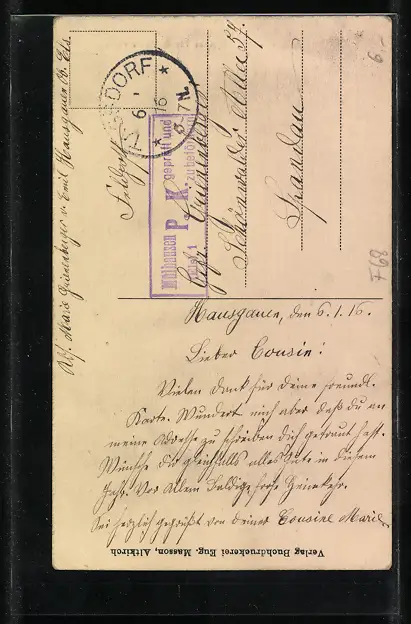 Hausgauen, den 6.1.16.
Lieber Cousin!
Vielen Dank für deine freundl.
Karte. Wundert mich aber daß du an
meine Adresse zu schreiben dich getraut hast.
Wünsche dir gleichfalls alles Gute in diesem
Jahr. Vor allem baldige frohe Heimkehr.
Sei herzlich gegrüßt von deiner Cousine Marie
Verlag Buchdruckerei Eug. Masson, Altkirch
Abs. Marie b. Emil Hausgauen Ob. Els.
Feldpost
Schönwalder
Spandau
DORF
6 1 16
7N.
Mülhausen
P. K.
geprüft und
zu befördern
F68
6.-